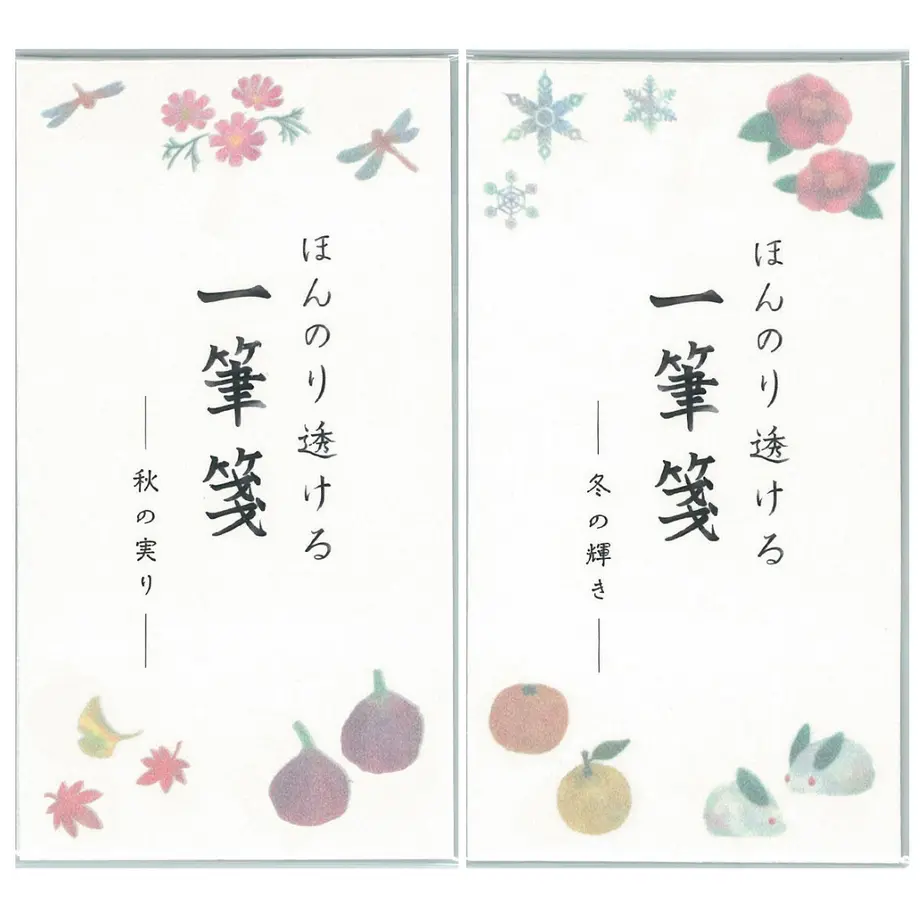 ほんのり透ける
一筆箋
秋の実り
ほんのり透ける
一筆箋
冬の輝き